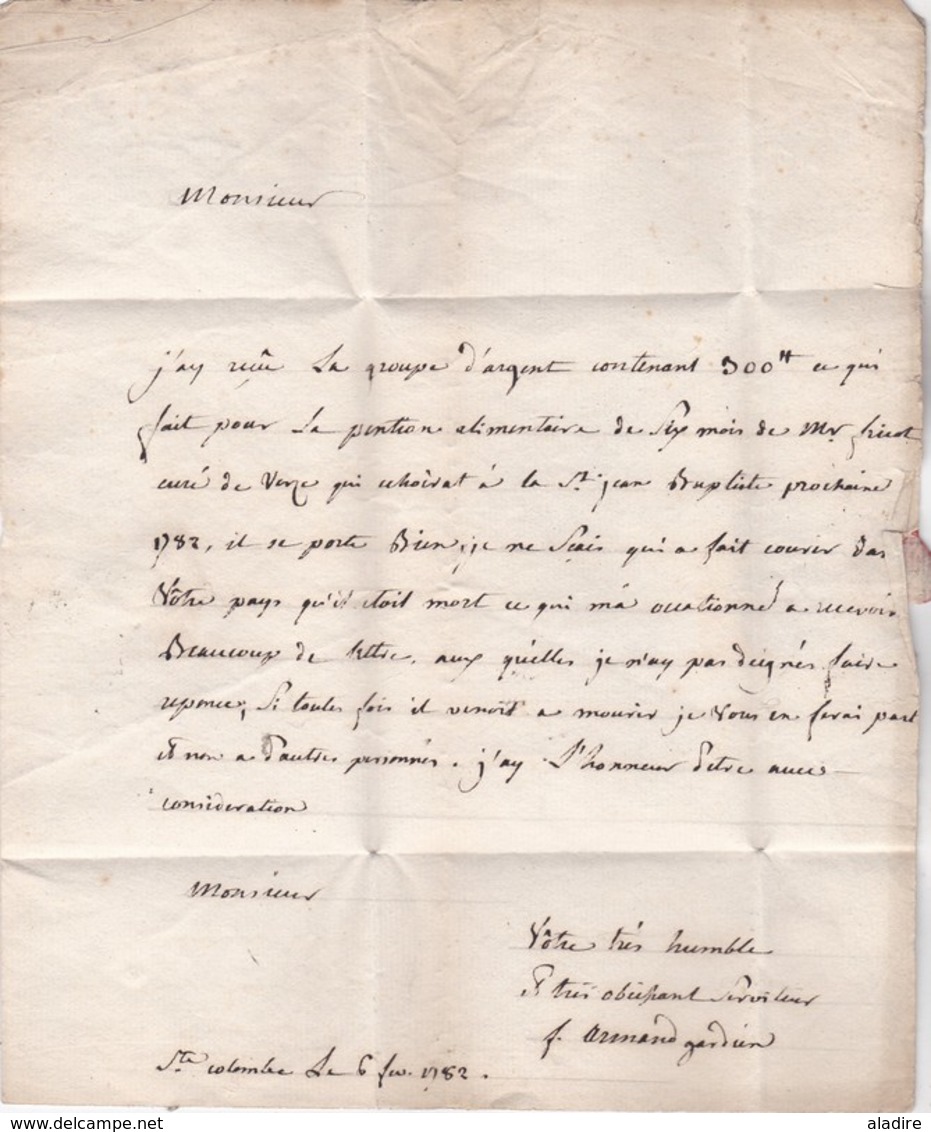 Monsieur
j'ay reçûe La groupe d'argent contenant 300tt ce qui
fait pour La pention alimentaire de Six mois de Mr
curé de Verze qui echoirat à la St. jean Baptiste prochaine
1782, il se porte Bien, je ne Scais qui a fait courir das
Vôtre pays qu'il etoit mort ce qui m'a ocationné a recevoir
Beaucoup de lettre, aux quelles je n'ay pas deignés faire
reponce, Si toutes fois il venoit a mourir je Vous en ferai part
et non a d'autres personnes. j'ay L'honneur d'etre avec
consideration
Monsieur
Vôtre très humble
Et très obeissant Serviteur
f. Armand gardien
Ste colombe Le 6 fev. 1782.
aladire